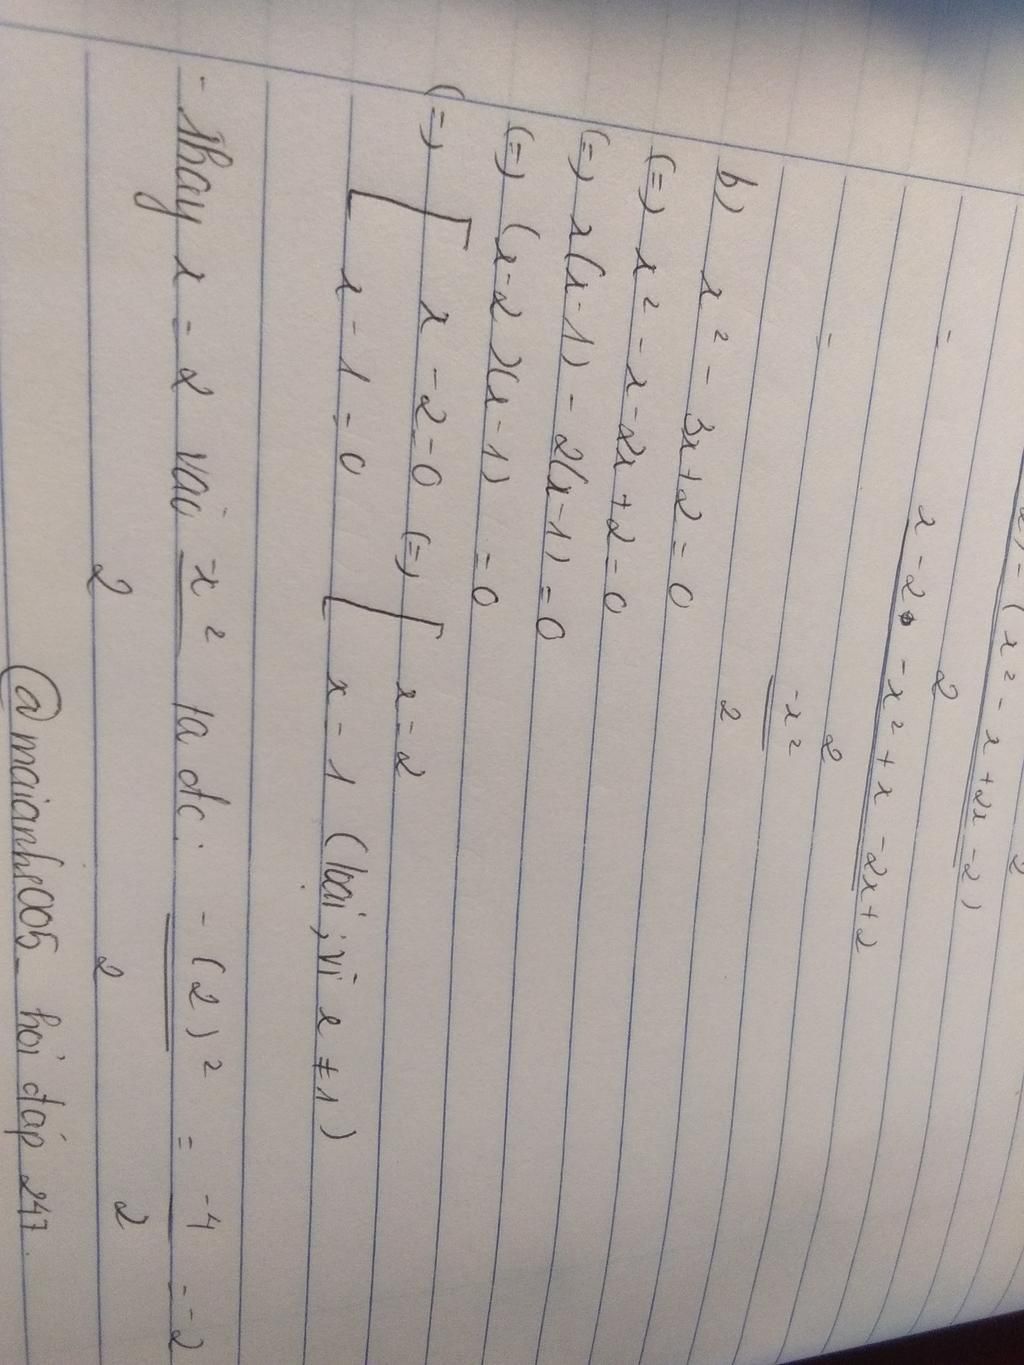 x) - (x² - x + 2x - 2)
2
= x - 2 - x² + x - 2x + 2
2
= -x²
2
b) x² - 3x + 2 = 0
(=) x² - x - 2x + 2 = 0
(=) x(x - 1) - 2(x - 1) = 0
(=) (x - 2)(x - 1) = 0
(=) [ x - 2 = 0 (=) [ x = 2
x - 1 = 0 x = 1 (loại, vì x ≠ 1)
- Thay x = 2 vào -x²/2 ta đc: -(2)²/2 = -4/2 = -2
@maianhe005_ hoi đáp 247.